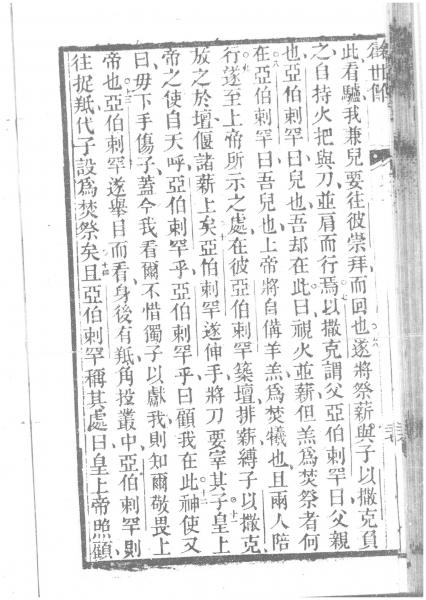 此看驢我兼兒要往彼崇拜而回也遂將祭薪與子以撒克負
之自持火把與刀並肩而行焉以撒克謂父亞伯剌罕曰父親
也亞伯剌罕曰兒也吾却在此曰視火並薪但羔爲焚祭者何
在亞伯剌罕曰吾兒也上帝將自備羊羔爲焚犧也且兩人陪
行遂至上帝所示之處在彼亞伯剌罕築壇排薪縛子以撒克
放之於壇偃諸薪上矣亞伯剌罕遂伸手將刀要宰其子皇上
帝之使自天呼亞伯剌罕乎亞伯剌罕乎曰顧我在此神使又
曰毋下手傷子蓋今我看爾不惜獨子以獻我則知爾敬畏上
帝也亞伯剌罕遂舉目而看身後有羝角投叢中亞伯剌罕則
往捉羝代子設爲焚祭矣且亞伯剌罕稱其處曰皇上帝照顧